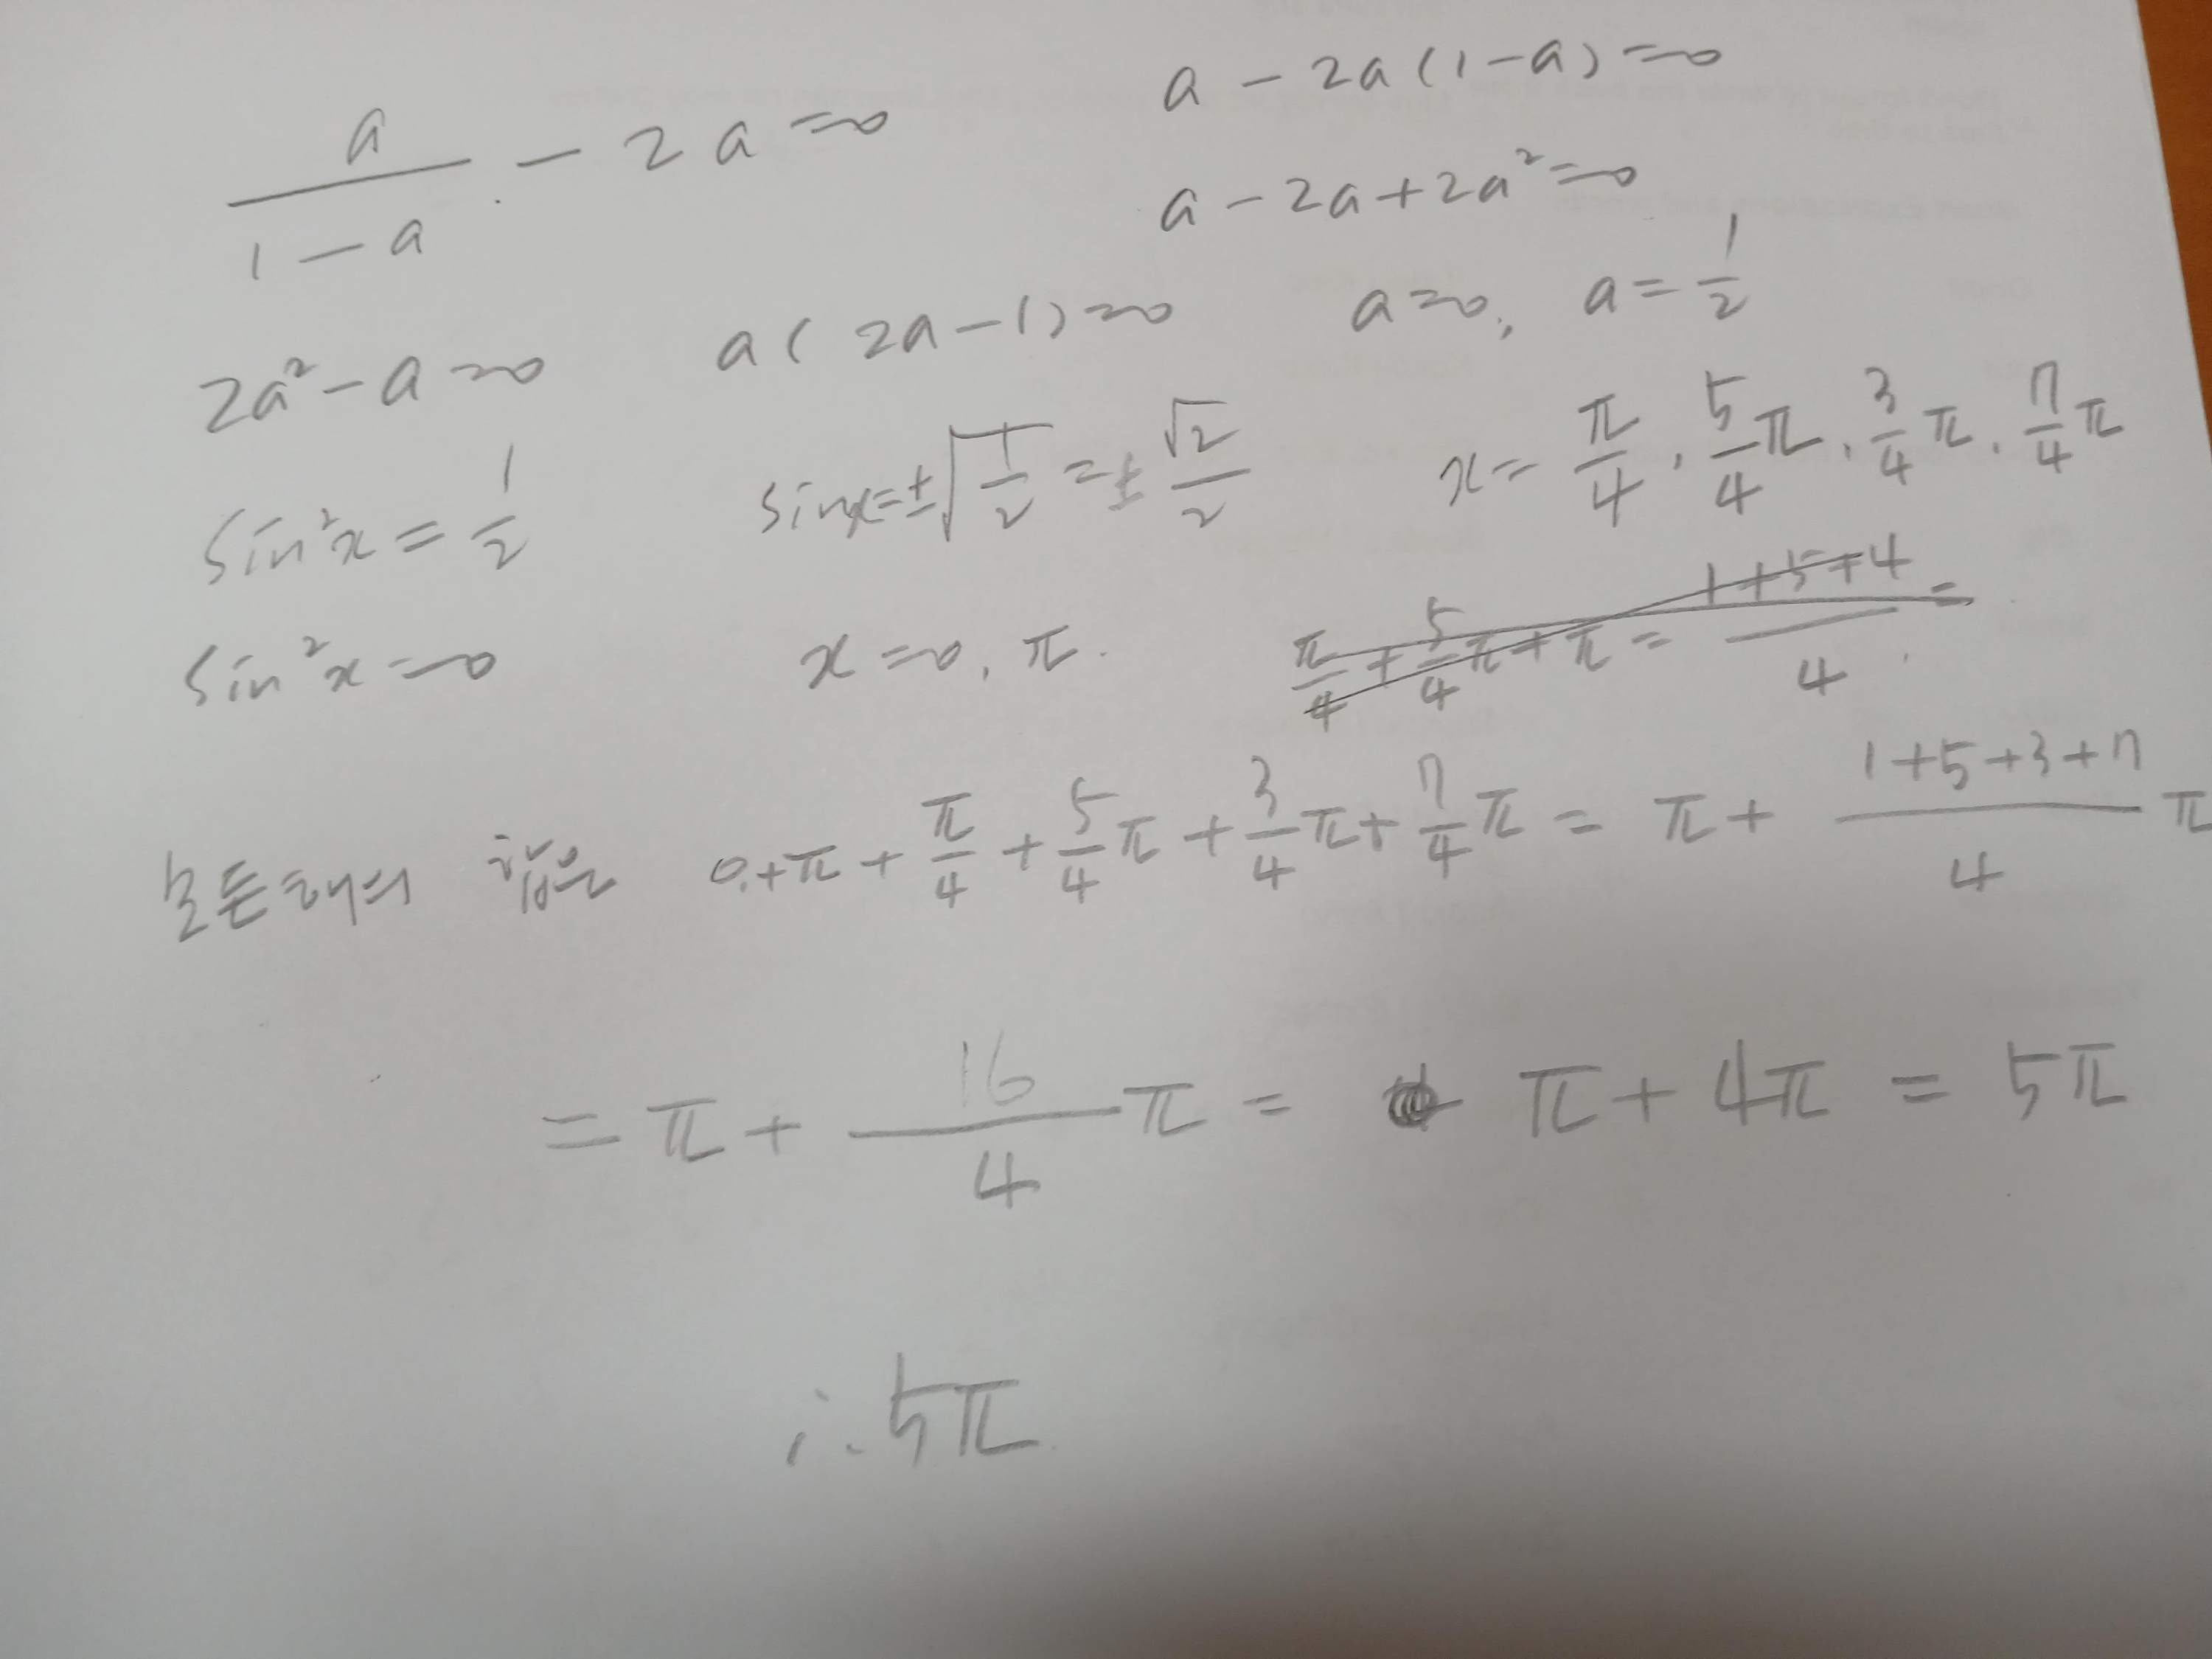 a/(1-a) - 2a = 0
a - 2a(1-a) = 0
a - 2a + 2a² = 0
2a² - a = 0   a(2a-1) = 0   a = 0, a = 1/2
sin²x = 1/2   sinx = ±√(1/2) = ±√2/2   x = π/4, 5/4π, 3/4π, 7/4π
sin²x = 0   x = 0, π.   π/4 + 5/4π + π = (1+5+4)/4 =
모든 해의 합은 0+π + π/4 + 5/4π + 3/4π + 7/4π = π + (1+5+3+7)/4 π
= π + 16/4 π = π + 4π = 5π
∴ 5π